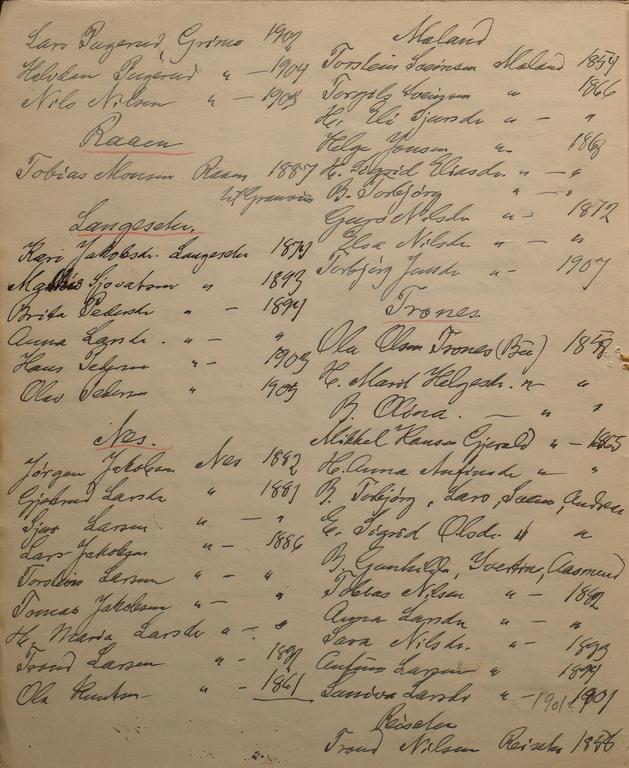 Lars Pugerud Grimo 1902
Halvdan Pugerud " - 1904
Nils Nilsen " - 1905
Raaen
Tobias Monsen Raaen 1887
Langesetr.
Kari Jakobsdr. Langesetr
Sjovatsen " 1893
Brita Pedersdr " -
Anna Larsdr. " - "
Hans " - 1903
Olav Pedersen " 1903
Nes.
Jørgen Jakobsen Nes 1882
Larsdr " 1881
Sjur Larsen " - "
Lars Jakobsen " - 1886
Torstein Larsen " - "
Tomas Jakobsen " - "
H. Marta Larsdr " - "
Trond Larsen " -
Ola Knutsen " - 1861
Maland
Torstein Sveinsen Maland 1854
Torgils Sveinsen " 1866
H. Eli Sjursdr " - "
Helge Jonsen " - 1868
H. Sigrid Eliasdr. " - "
B. Torbjörg " - "
Guro Nilsdr " - 1872
Elsa Nilsdr " - "
Torbjörg Jonsdr " - 1907
Trones
Ola Olsen Trones (Bu) 1858
H. Marit Helgesdr. " "
B. Olina. - " "
Mikkel Hansen Gjerald " -
H. Anna " "
B. Torbjörg, Lars, Svein, Andrea
E. Sigrid Olsdr. " "
B. Gunhilda, Aasmund
Tobias Nilsen " - 1892
Anna Larsdr " - "
Sara Nilsdr. " - 1893
Larsen "
Larsdr " - 1901
Reisæter
Trond Nilsen Reisæter 1856